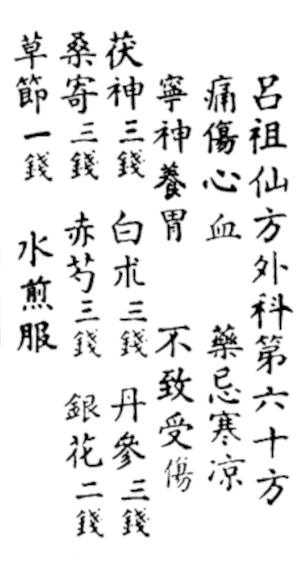 呂祖仙方外科第六十方
痛傷心血 藥忌寒凉
寧神養胃 不致受傷
茯神三錢 白朮三錢 丹參三錢
桑寄三錢 赤芍三錢 銀花二錢
草節一錢 水煎服